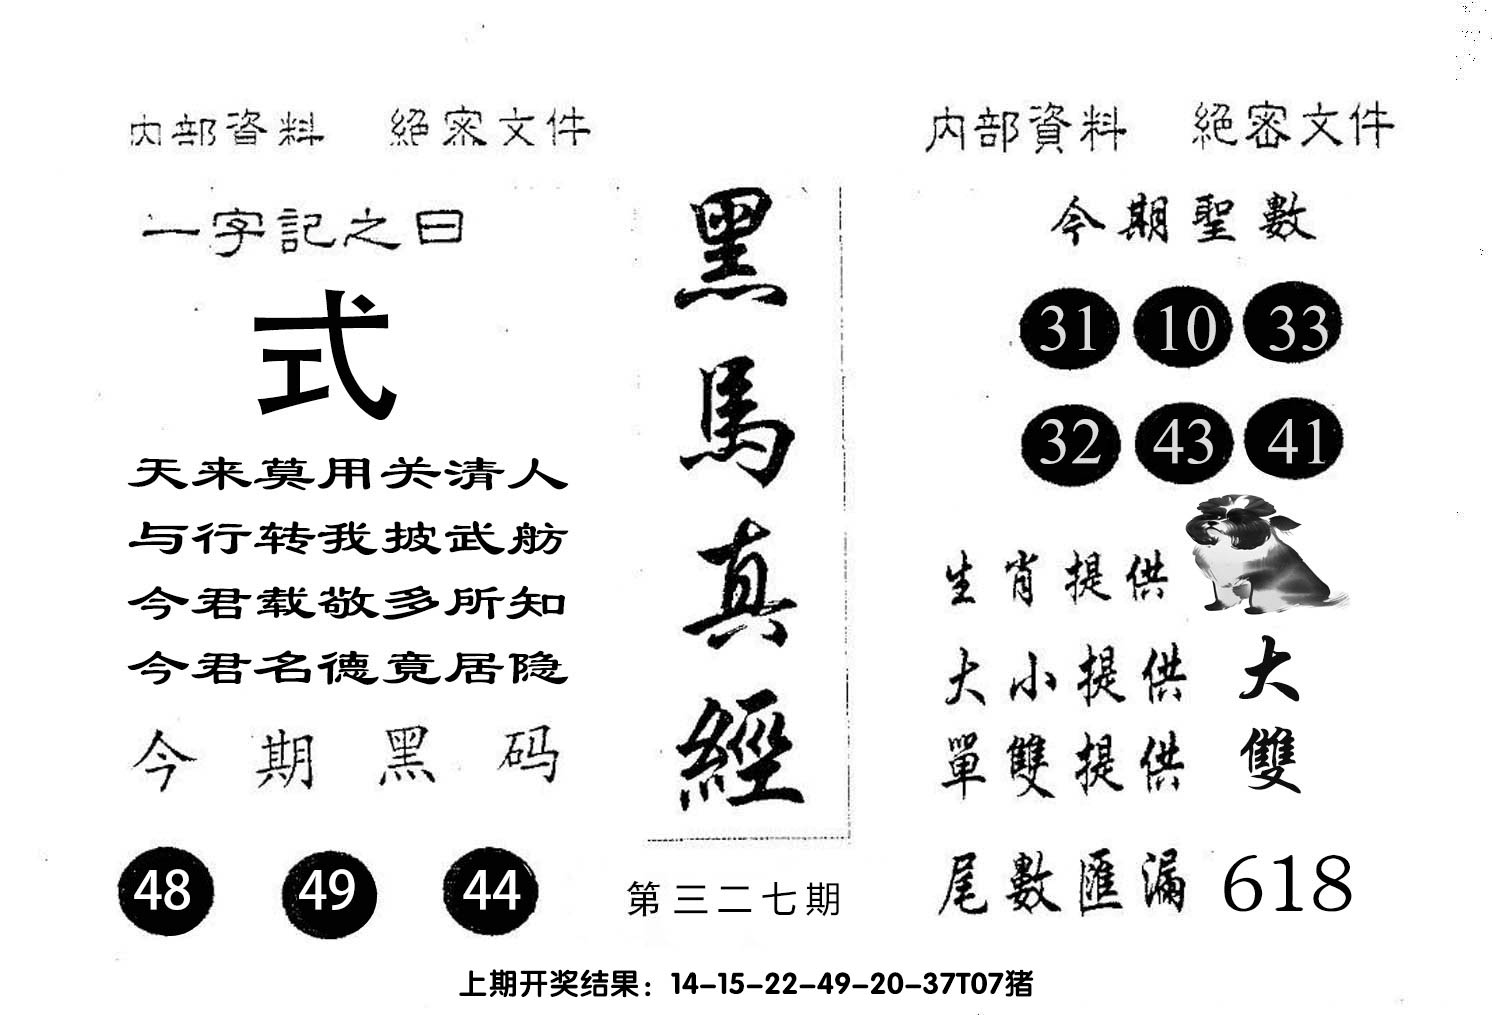 内部資料 絕密文件
一字記之曰
式
天来莫用关清人
与行转我披武舫
今君载敬多所知
今君名德竟居隐
今期黑码
48 49 44
黑馬真經
第三二七期
内部資料 絕密文件
今期聖數
31 10 33
32 43 41
生肖提供
大小提供 大
單雙提供 雙
尾數匯漏 618
上期开奖结果：14-15-22-49-20-37T07猪